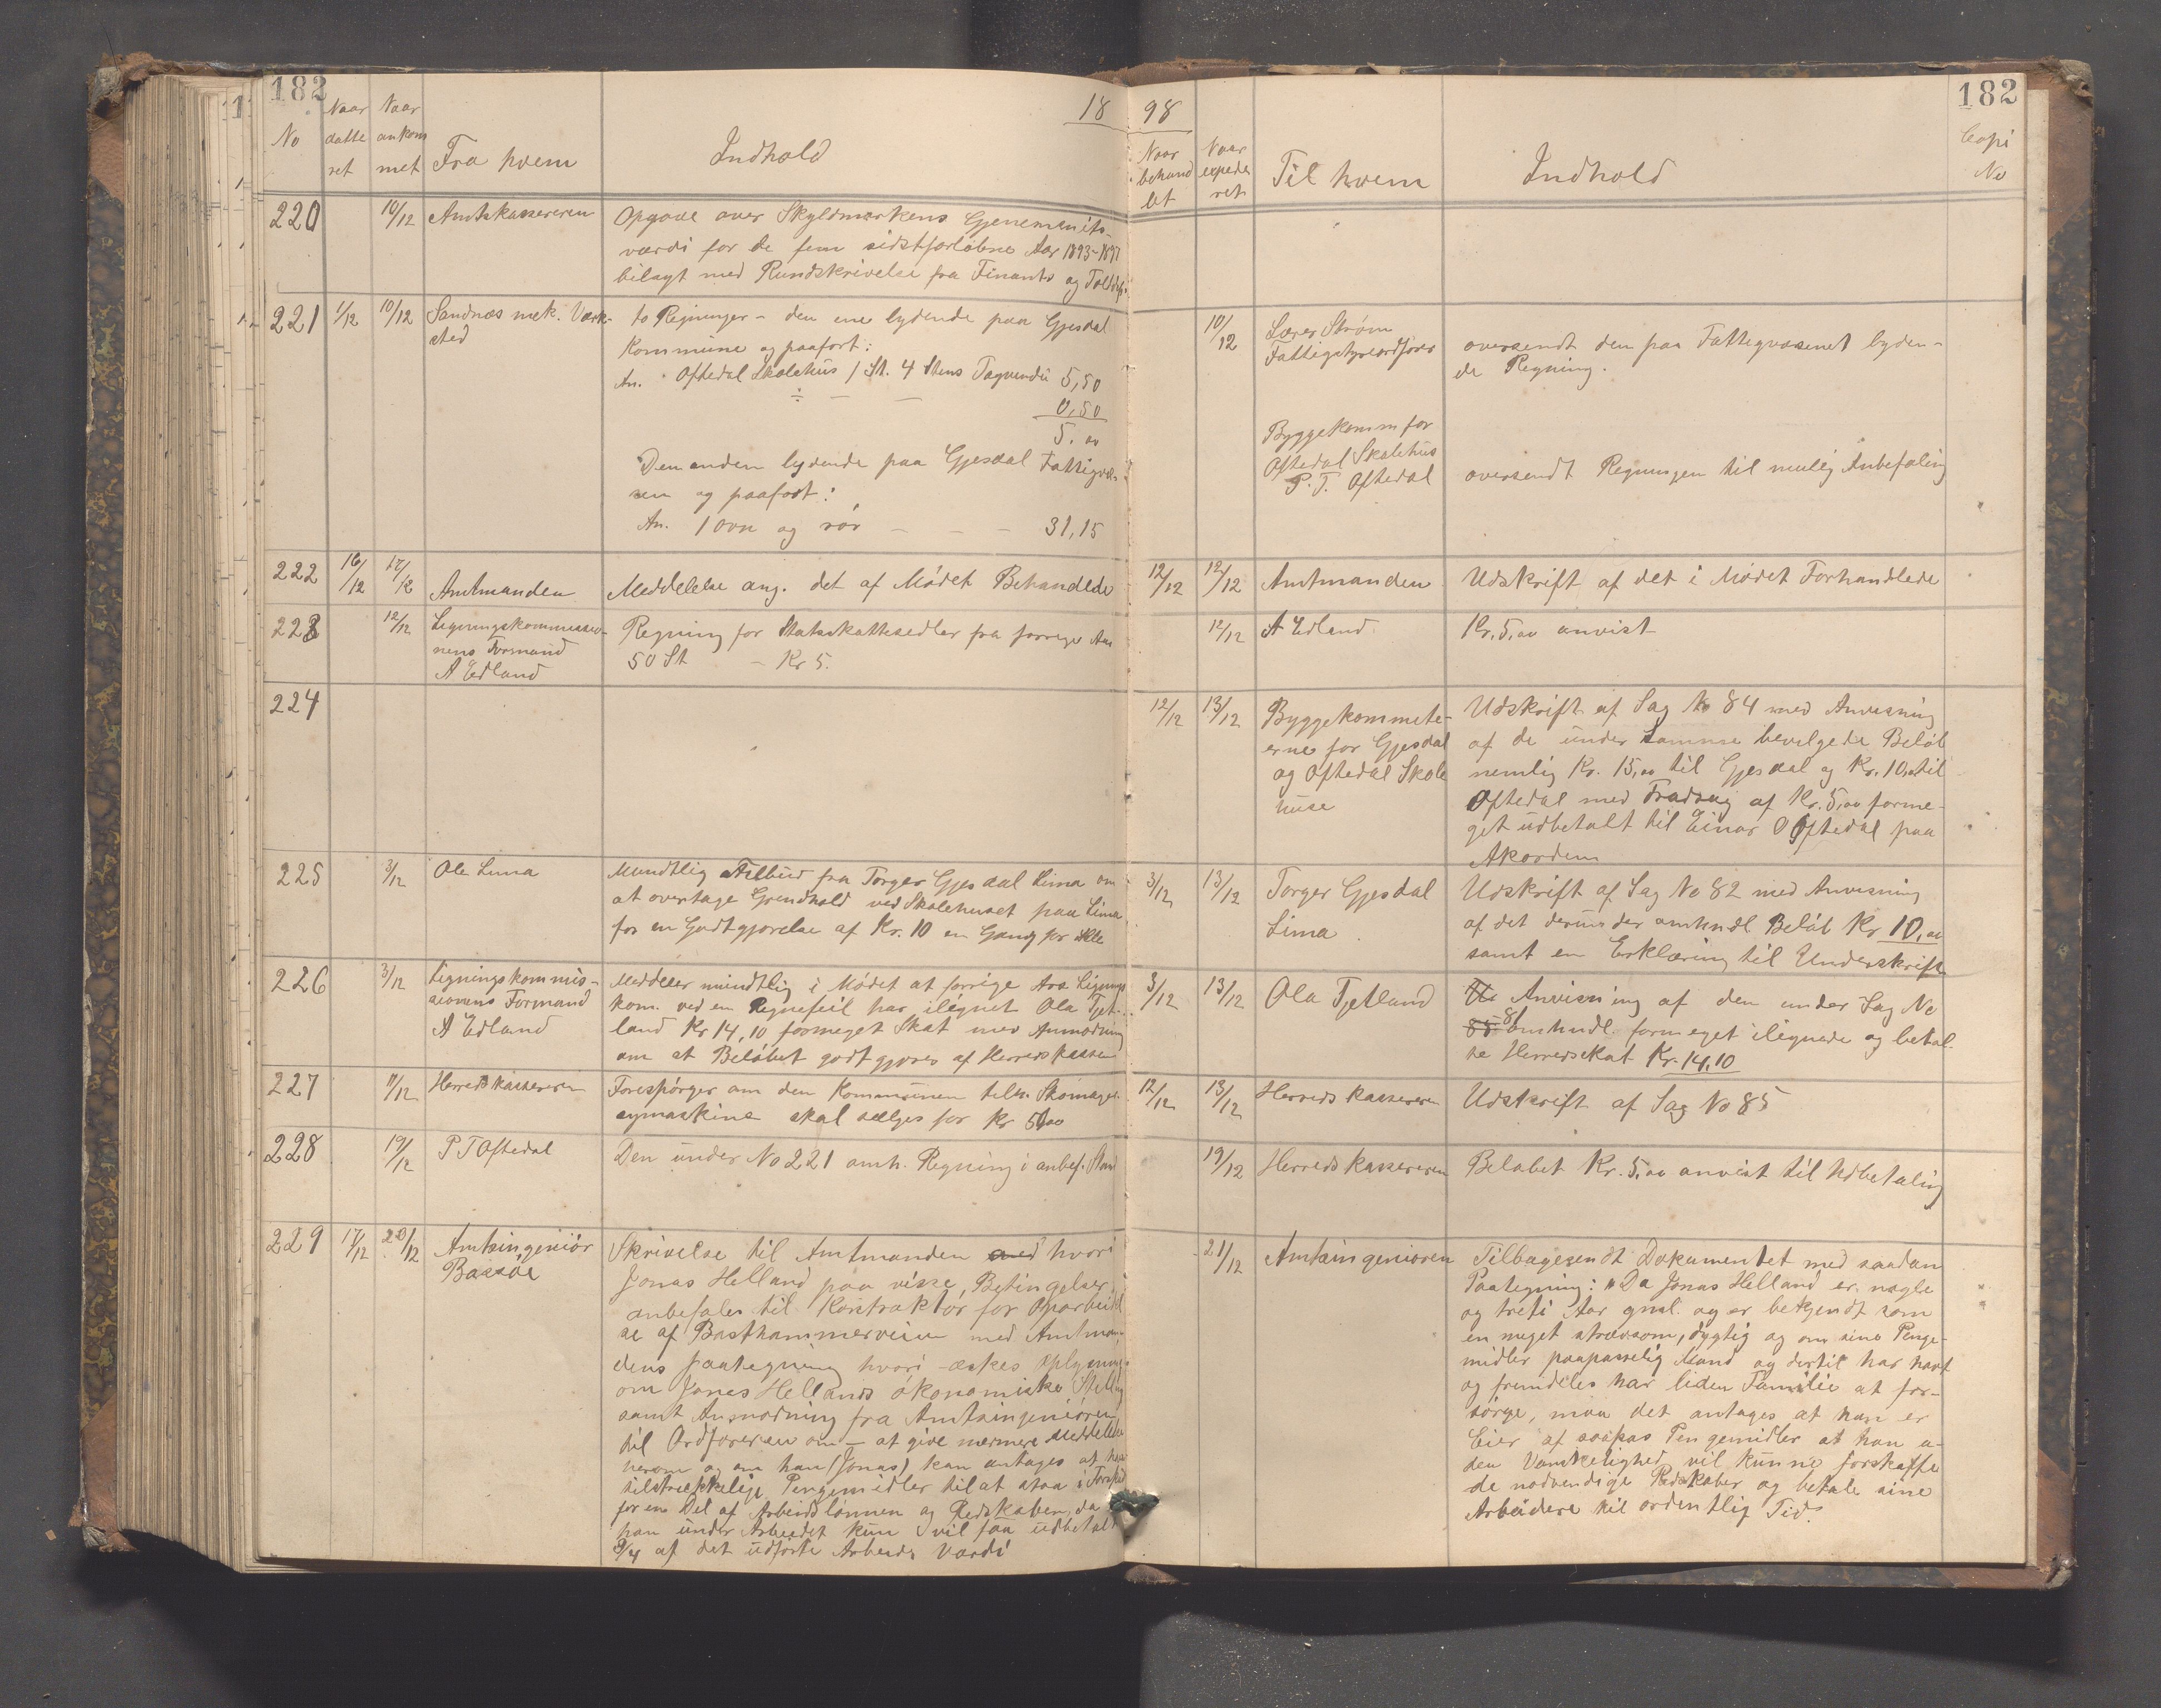 182
18
No
Naar datte ret
Naar ankom met
Fra hvem
Indhold
220
10/12
Amtskassereren
Opgave over Skyldmarkens Gjenemsnits-
værdi for de fem sidstforløbne Aar 1893-1897
bilagt med Rundskrivelse fra Finants og Tolddep.
221
1/12
10/12
Sandnæs mek. Værk-
sted
to Regninger - den ene lydende paa Gjesdal
Kommune og paaført:
An. Oftedal Skolehus 1 St. 4 5,50
÷ — — 0,50
5.00
Den anden lydende paa Gjesdal Fattigvæ-
sen og paaført:
An. 1 ovn og rør — — — 31,15
222
16/12
17/12
Amtmanden
Meddelelse ang. det af Mødet Behandlede
223
12/12
Ligningskommissio-
nens Formand
A Edland
Regning for Statsskattesedler fra forrige Aar
50 St — Kr 5.
224
225
3/12
Ole Lima
Mundtlig Tilbud fra Torger Gjesdal Lima om
at overtage Grindhold ved Skolehuset paa Lima
for en Godtgjørelse af Kr. 10 en Gang for alle
226
3/12
Ligningskommis-
sionens Formand
A Edland
Meddeler mundtlig i Mødet at forrige Ars Lignings
kom. ved en Regnefeil har ilignet Ola Tjet-
land Kr 14,10 formeget Skat med Anmodning
om at Beløbet godtgjøres af Herredskassen
227
11/12
Herredskassereren
Forespørger om den Kommunen tilh. Skomager
symaskine skal sælges for Kr 50,00
228
19/12
P T Oftedal
Den under No 221 omh. Regning i anbef. Stand
229
17/12
20/12
Amtsingeniør
Bassøe
Skrivelse til Amtmanden med hvori
Jonas Helland paa visse Betingelser
anbefales til Kontraktør for Oparbeidel
se af Basthammerveien med Amtman-
dens paategning hvori æskes Oplysning
om Jonas Hellands økonomiske Stilling
samt Anmodning fra Amtsingeniøren
til Ordføreren om - at give nærmere Meddelelse
herom og om han (Jonas) kan antages at have
tilstrækkelige Pengemidler til at staa i Forskud
for en Del af Arbeidslønnen og Redskaber, da
han under Arbeidet kun vil faa udbetalt
3/4 af det udførte Arbeids Værdi
98
182
Naar behand let
Naar expede ret
Til hvem
Indhold
Copi No
10/12
Lærer Strøm
Fattigstyreordfører
oversendt den paa Fattigvæsenet lyden-
de Regning.
Byggekomm for
Oftedal Skolehus
P. T. Oftedal
oversendt Regningen til mulig Anbefaling
12/12
12/12
Amtmanden
Udskrift af det i Mødet Forhandlede
12/12
A Edland
Kr. 5,00 anvist
12/12
13/12
Byggekommete-
erne for Gjesdal
og Oftedal Skole
huse
Udskrift af Sag No 84 med Anvisning
af de under samme bevilgede Beløb
nemlig Kr. 15,00 til Gjesdal og Kr. 10,00 til
Oftedal med Fradrag af Kr. 5,00 forme-
get udbetalt til Einar O Oftedal paa
Akorden
3/12
13/12
Torger Gjesdal
Lima
Udskrift af Sag No 82 med Anvisning
af det derunder omhndl Beløb Kr 10,00
samt en Erklæring til Underskrift
3/12
13/12
Ola Tjetland
Anvisning af den under Sag No
81 omhndl. formeget ilignede og betal-
te Herredsskat Kr. 14,10
12/12
13/12
Herredskassereren
Udskrift af Sag No 85
19/12
Herredskassereren
Beløbet Kr. 5,00 anvist til Udbetaling
21/12
Amtsingeniøren
Tilbagesendt Dokumentet med saadan
Paategning: "Da Jonas Helland er nogle
og treti Aar gml. og er bekjendt som
en meget strævsom, dygtig og om sine Penge-
midler paapasselig Mand og dertil har havt
og fremdeles har liden Familie at for-
sørge, maa det antages at han er
Eier af saapas Pengemidler at han u-
den Vanskelighed vil kunne forskaffe
de nødvendige Redskaber og betale sine
Arbeidere til ordentlig Tid.